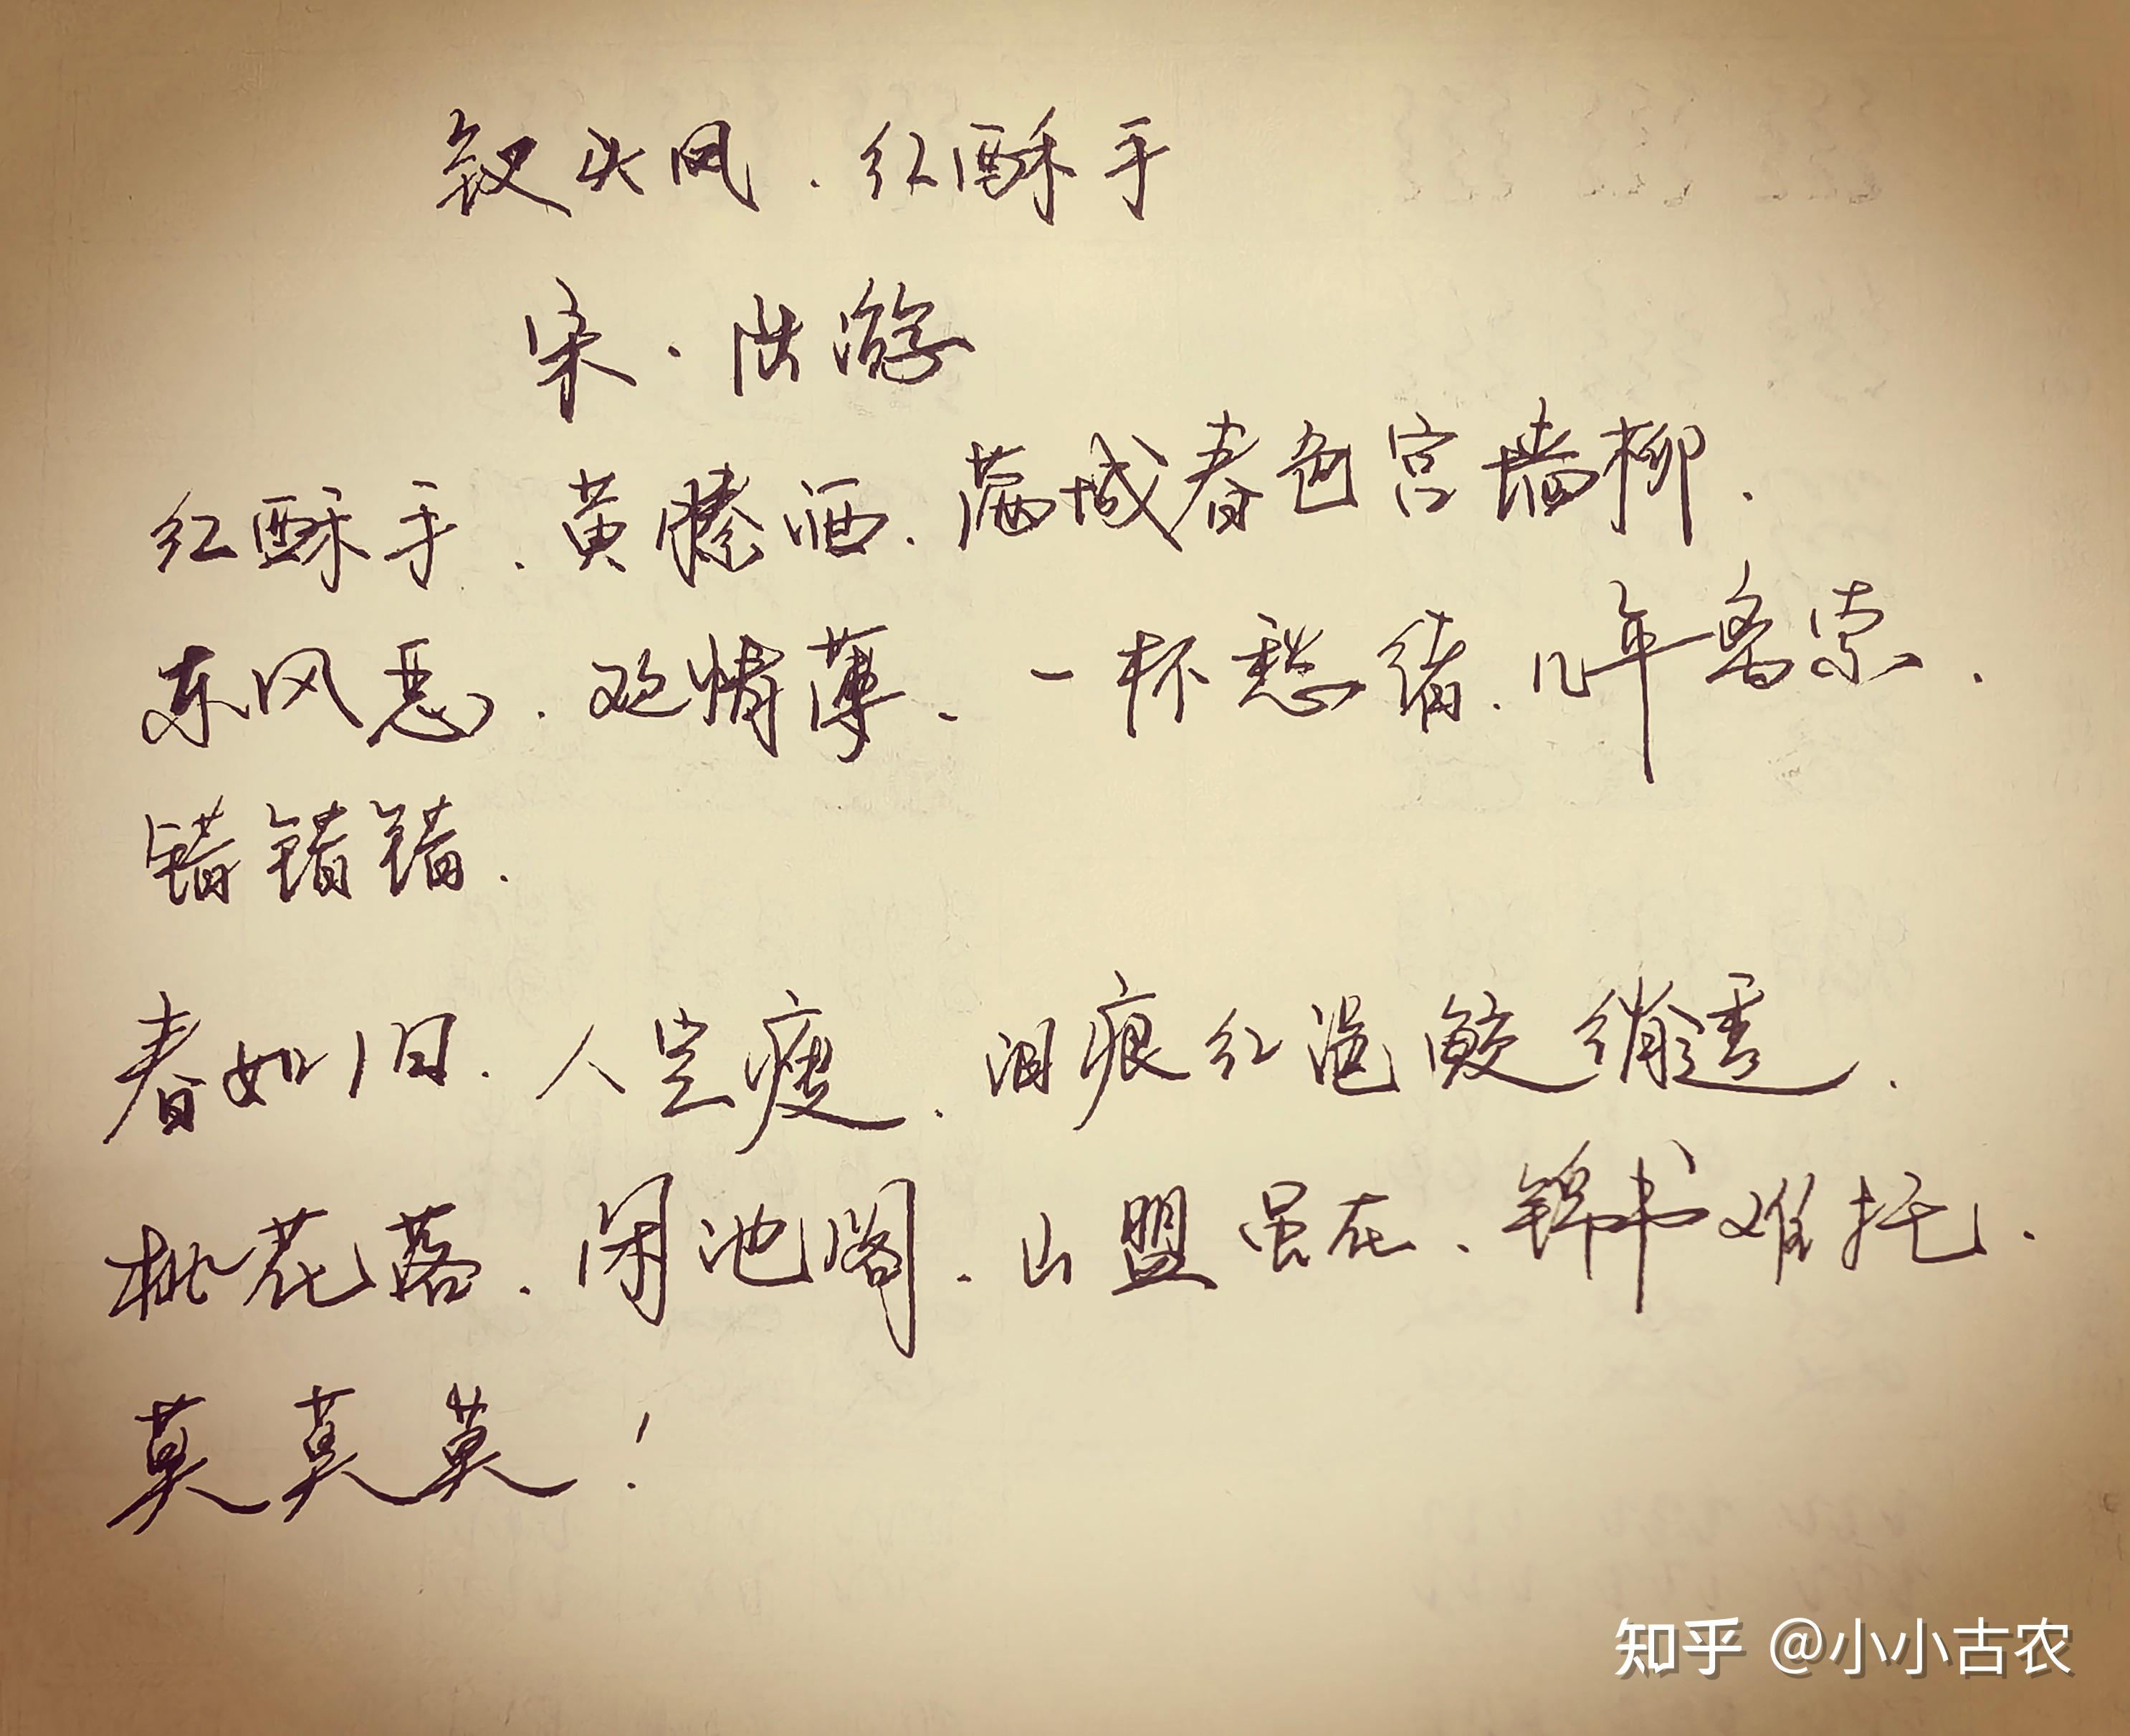 钗头凤.红酥手
宋.陆游
红酥手.黄縢酒.满城春色宫墙柳.
东风恶.欢情薄.一杯愁绪.几年离索.
错错错.
春如旧.人空瘦.泪痕红浥鲛绡透.
桃花落.闲池阁.山盟虽在.锦书难托.
莫莫莫!
知乎 @小小古农